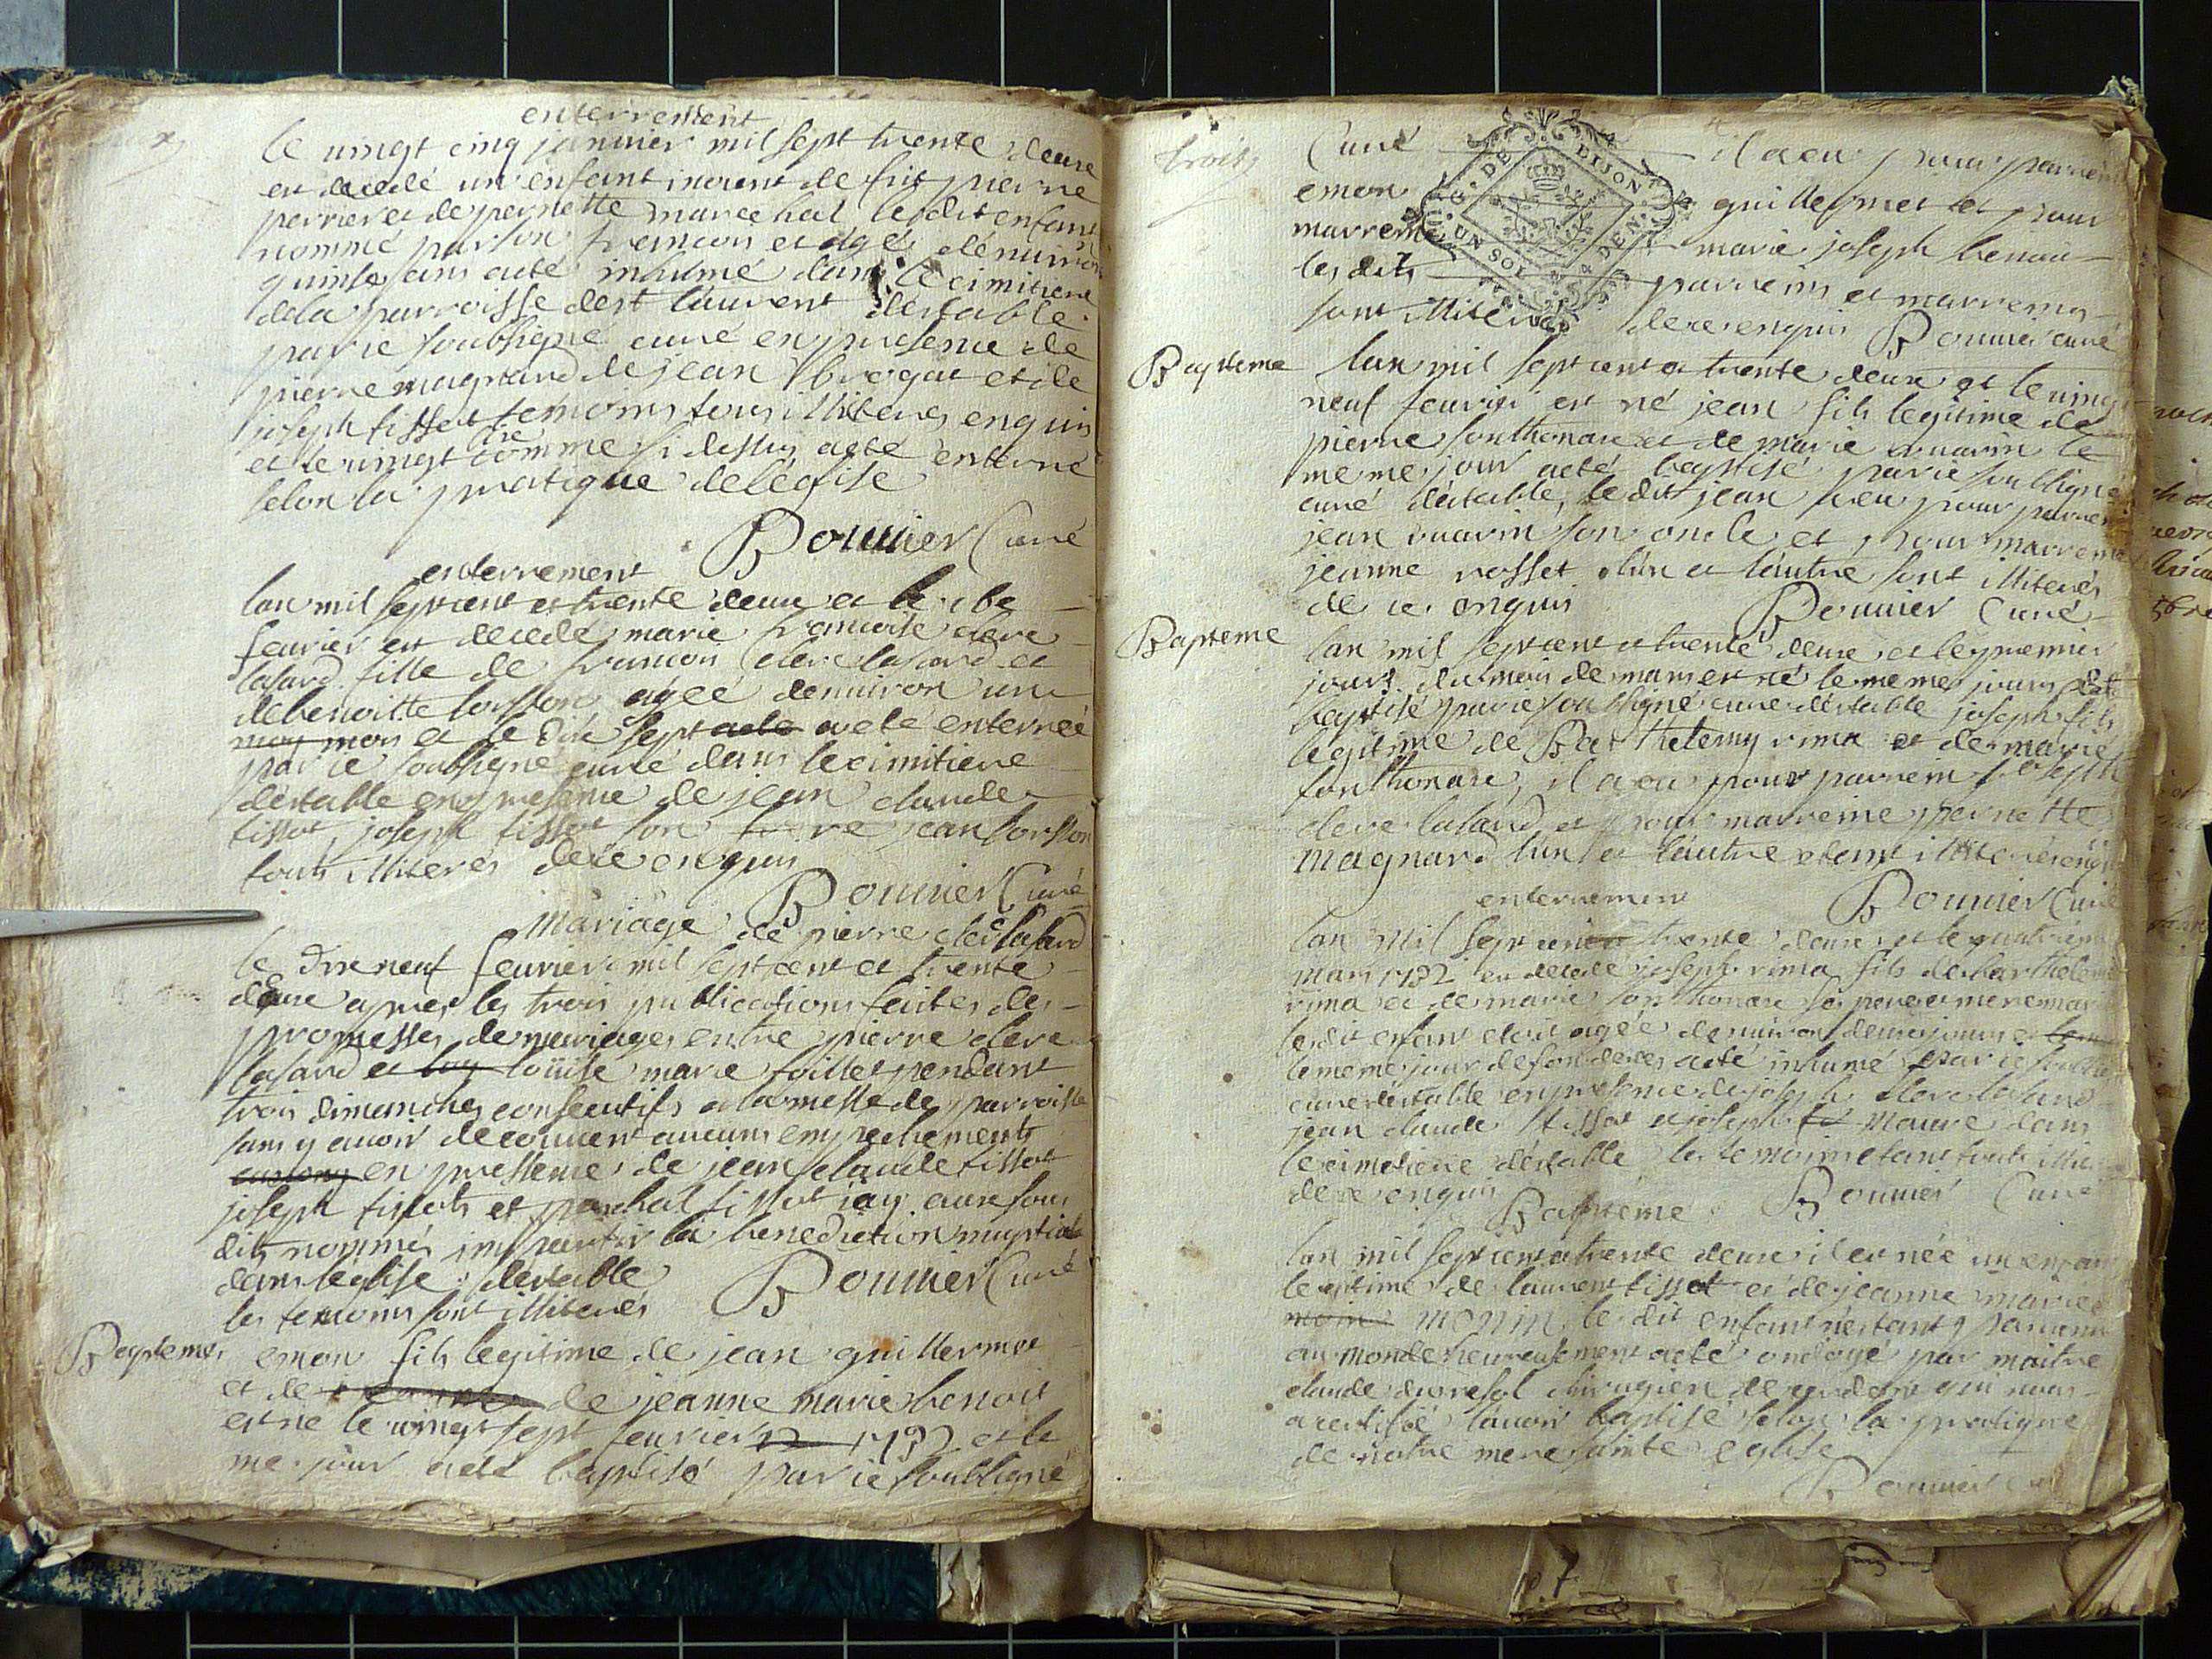 enterrement
le vingt cinq janvier mil sept trente deux
est decedé un enfant de fut pierre
perrier et de pernette marechal le dit enfant
nommé par son françois et agé dénviron
quinse ans aeté inhumé dans le cimitiere
dela parroisse de st laurent déstable
par ie soubsigné curé en presence de
pierre magnard de jean broqat et de
joseph tissot temoins tous illiterés enquis
et le vingt comme si dessus aeté enterré
selon la pratique de léglise
Bouuier Curé
enterrement
lan mil sept cent et trente deux et le
feurier est decedé marie françoise clerc
lasard fille de françois clerc lasard et
de benoitte sorsson agée denuiron un
moy mois et le dix sept aeté aeté enterreé
par ie soubsigné curé dans le cimitiere
déstable en presence de jean claude
tissot, joseph tissot son jean sorsson
touts illiteres de ce enquis
Bouuier Curé
Mariage de pierre clerc lasard
le dix neuf feurier mil sept cent et trente
deux apres les trois publications faites des
promesses de mariages entre pierre clerc
lasard et loüise marie foillet pendant
trois dimanches consecutifs a la messe de parroisse
sans y auoir decouuert aucuns empechements
en presence de jean claude tissot
joseph tissots et paschal tissot iay aux sous
dits nommés impartir la benediction nuptiale
dans léglise déstable
Bouuier Curé
les temoins sont illiterés
Baptemes
emon fils legitime de jean guillermet
et de de jeanne marie benoit
est né le vingt sept feurier 1732 et le
me jour aeté baptisé par ie soubsigné
trois
Curé il a eu pour parrein
emon guillermet et pour
marreine marie joseph benoi
les dits parreins et marreines
sont illiterés de ce enquis Bouuier curé
G. DE DIJON
UN SOL 4 DEN.
Bapteme
lan mil sept cent et trente deux et le vingt
neuf feurier est né jean fils legitime de
pierre sonthonax et de marie ruarin le
meme jour aeté baptisé par ie soubsigné
curé déstable, le dit jean a eu pour parrein
jean ruarin son oncle et pour marreine
jeanne rosset lún et láutre sont illiterés
de ce enquis Bouuier Curé
Bapteme
lan mil sept cent et trente deux et le premier
jours du mois de mars est né le meme jours
baptisé par ie soubsigné curé déstable joseph fils
legitime de Barthelemy rima et de marie
sonthonax, il a eu pour parrein joseph
clerc lasard et pour marreine pernette
magnard lun et láutre etant illiterés enquis
enterrement
Bouuier Curé
lan mil sept cent trente deux et le quatriem
mars 1732 est decedé joseph rima fils de barthelem
rima et de marie sonthonax ses pere et mere
le dit enfant etoit agée denuiron deux jours
le meme jour de son deces aeté inhumé par ie soubs
curé déstable en presence de joseph clerc lasard
jean claude tissot et joseph maure dans
le cimetiere déstable les temoins etant touts illite
de ce enquis
Bouuier Curé
Bapteme
lan mil sept cent et trente deux il est née un enfan
legitime de laurent tissot et de jeanne marie
monin le dit enfant nestant parvenu
au monde heureusement aeté ondoyé par maitre
claude chirugien de qui nous
a certifié láuoir baptisé selon la pratique
de notre mere sainte eglise
Bouuier
7